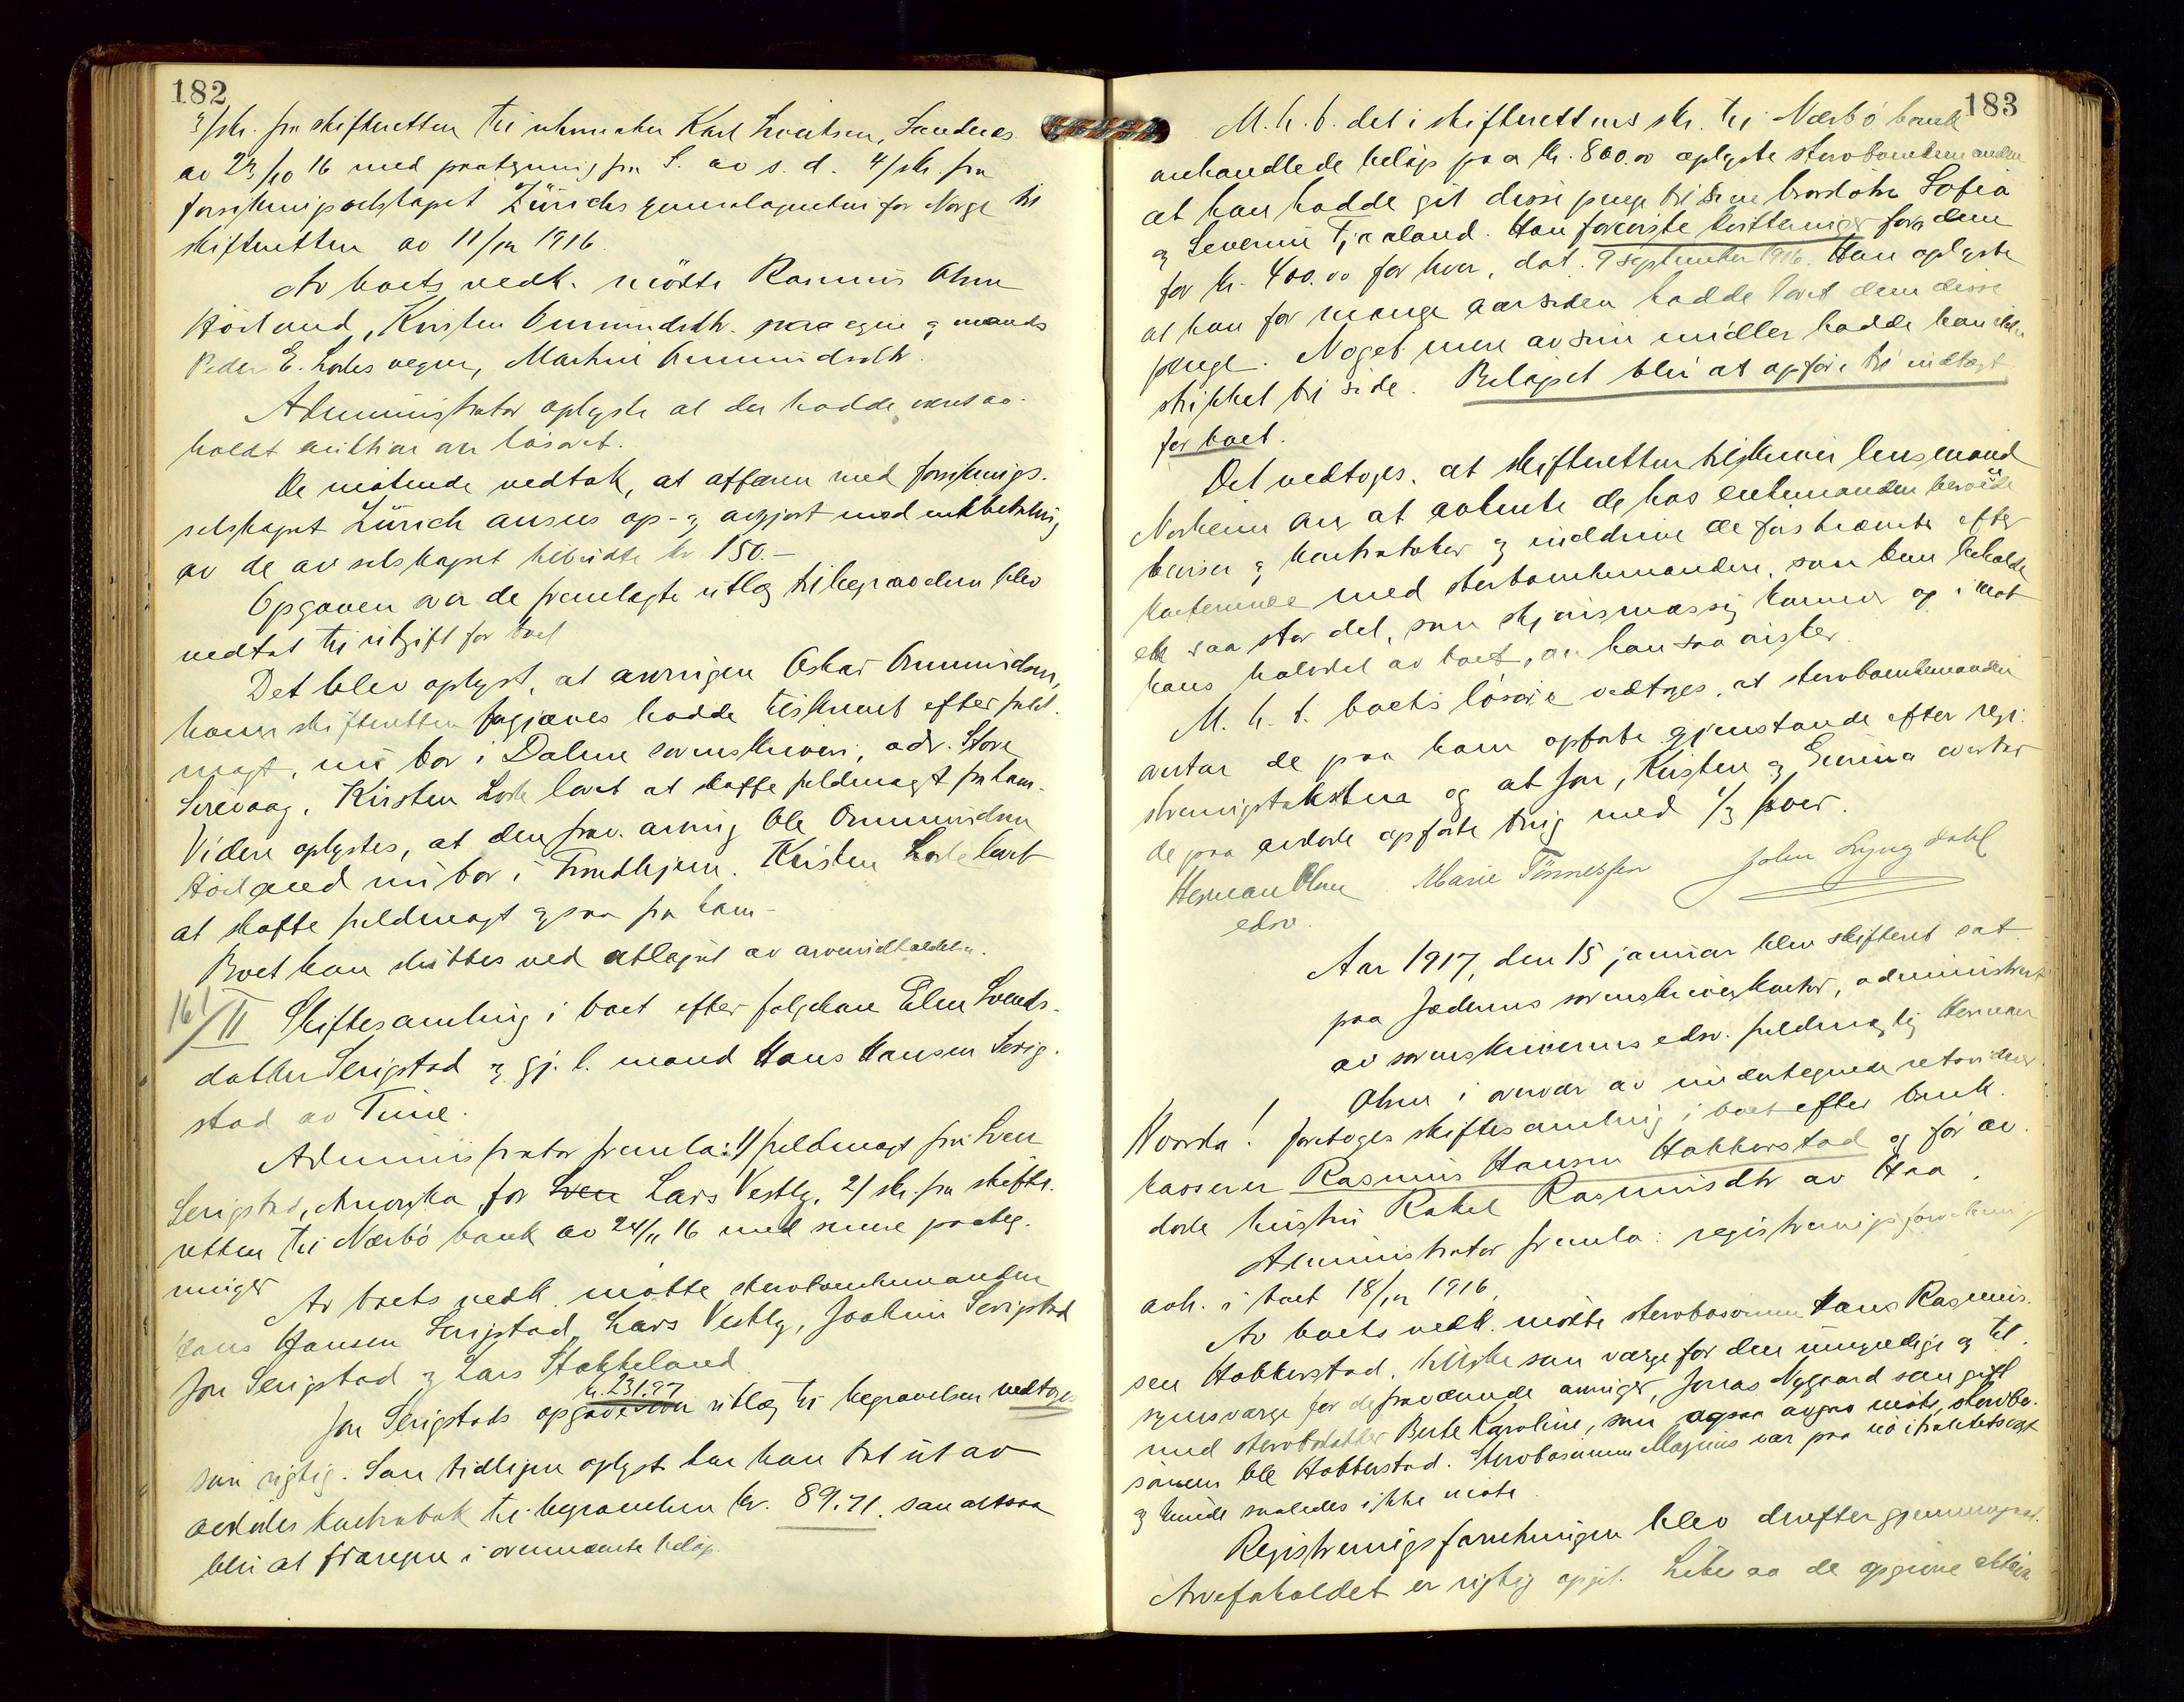 182
3/ skr. fra skifteretten til urmaker Karl Sivertsen, Sandnes
av 23/10 16 med paategning fra S. av s. d. 4/ skr. fra
forsikringsselskapet Zürichs generalagentur for Norge til
skifteretten av 11/12 1916.
Av boets vedk. mötte Rasmus Olsen
Höiland, Kirsten Ommundsdtr. paa egne og mands
Peder E. Lodes vegne, Martin Ommundsdtr.
Administrator oplyste at der hadde været av-
holdt auktion over lösöret.
De mötende vedtok, at affæren med forsikrings-
selskapet Zürich ansees op- og avgjort med utbetaling
av de av selskapet tilbudte kr 150.-
Opgaven over de fremlagte utlæg til begravelsen blev
vedtat til utgift for boet
Det blev oplyst, at arvingen Oskar Ommundsen,
hvem skifteretten forgjæves hadde tilskrevet efter fuld-
magt, nu bor i Dalene sorenskriveri, adr. Store
Sirevaag. Kirsten Lode lovet at skaffe fuldmagt fra ham.
Videre oplystes, at den frav. arving Ole Ommundsen
Höiland nu bor i Trondhjem. Kirsten Lode lovet
at skaffe fuldmagt ogsaa fra ham.
Boet kan sluttes ved avlöpet av
161/II Skiftesamling i boet efter folgekone Elen Svends-
datter Serigstad og gj. l. mand Hans Hansen Serig-
stad av Time.
Administrator fremla: 1/ fuldmagt fra Sven
Serigstad, Amerika for Sven Lars Vestly, 2/ skr. fra skifte-
retten til Nærbö bank av 24/11 16 med senere paateg-
ninger
Av boets vedk. mötte sterbboenkemanden
Hans Hansen Serigstad, Lars Vestly, Joakim Serigstad
Jon Serigstad og Lars Stokkeland.
kr. 231.97
Jon Serigstads opgave over utlæg til begravelsen vedtoges
som rigtig. Som tidligere oplyst har han tat ut av
avdödes kontrabok til begravelsen kr. 89.71. som altsaa
blir at fradrage i ovennævnte belöp.
183
M. h. t. det i skifterettens skr. til Nærbö bank
omhandlede belöp paa kr. 800.00 oplyste sterbboenkemanden
at han hadde git disse penge til sine brordötre Sofia
og Severine Tjaaland. Han foreviste kvitteringer fra dem
for kr. 400.00 for hver, dat. 9 september 1916. Han oplyste
at han for mange aar siden hadde lovet dem disse
penge. Noget mere av sine midler hadde han ikke
stikket til side. Belöpet blir at opföre til indtægt
for boet.
Det vedtoges, at skifteretten tilskriver lensmand
Norheim om at avhente de hos enkemanden beroende
beviser og kontraböker og inddrive de förstnævnte efter
konferance med sterbboenkemanden, som kan beholde
en saa stor del, som skjönsmæssig kommer op imot
hans halvdel av boet, om han saa önsker.
M. h. t. boets lösöre vedtoges, at sterbboenkemanden
overtar de paa ham opförte gjenstande efter regi-
streringstakstene og at Jon, Kirsten og Serina overtar
de paa avdöde opförte ting med 1/3 hver.
Herman Olsen Marie Tönnessen John Lyngdahl
edsv.
Aar 1917, den 15 januar blev skifteret sat
paa Jæderens sorenskriverkontor, administrert
av sorenskriverens edsv. fuldmægtig Herman
Olsen i overvær av undertegnede retsvidner.
Noorda! Foretoges skiftesamling i boet efter bank-
kasserer Rasmus Hansen Hobberstad og för av-
döde hustru Rakel Rasmusdtr av Haa.
Administrator fremla: registreringsforretning
avh. i boet 18/12 1916.
Av boets vedk. mötte sterbbosönnen Hans Rasmus-
sen Hobberstad, tillike som værge for den umyndige og til-
synsværge for de fraværende arvinger, Jonas Nygaard som gift
med sterbbodatter Berte Karoline, som ogsaa avgav möte, sterbbo-
sönnen Ole Hobberstad. Sterbbosönnen Magnus var paa nöitralitetsvagt
og kunde saaledes ikke möte.
Registreringsforretningen blev derefter gjennemgaat.
Arveforholdet er rigtig opgit. Likesaa de opgivne aktiva